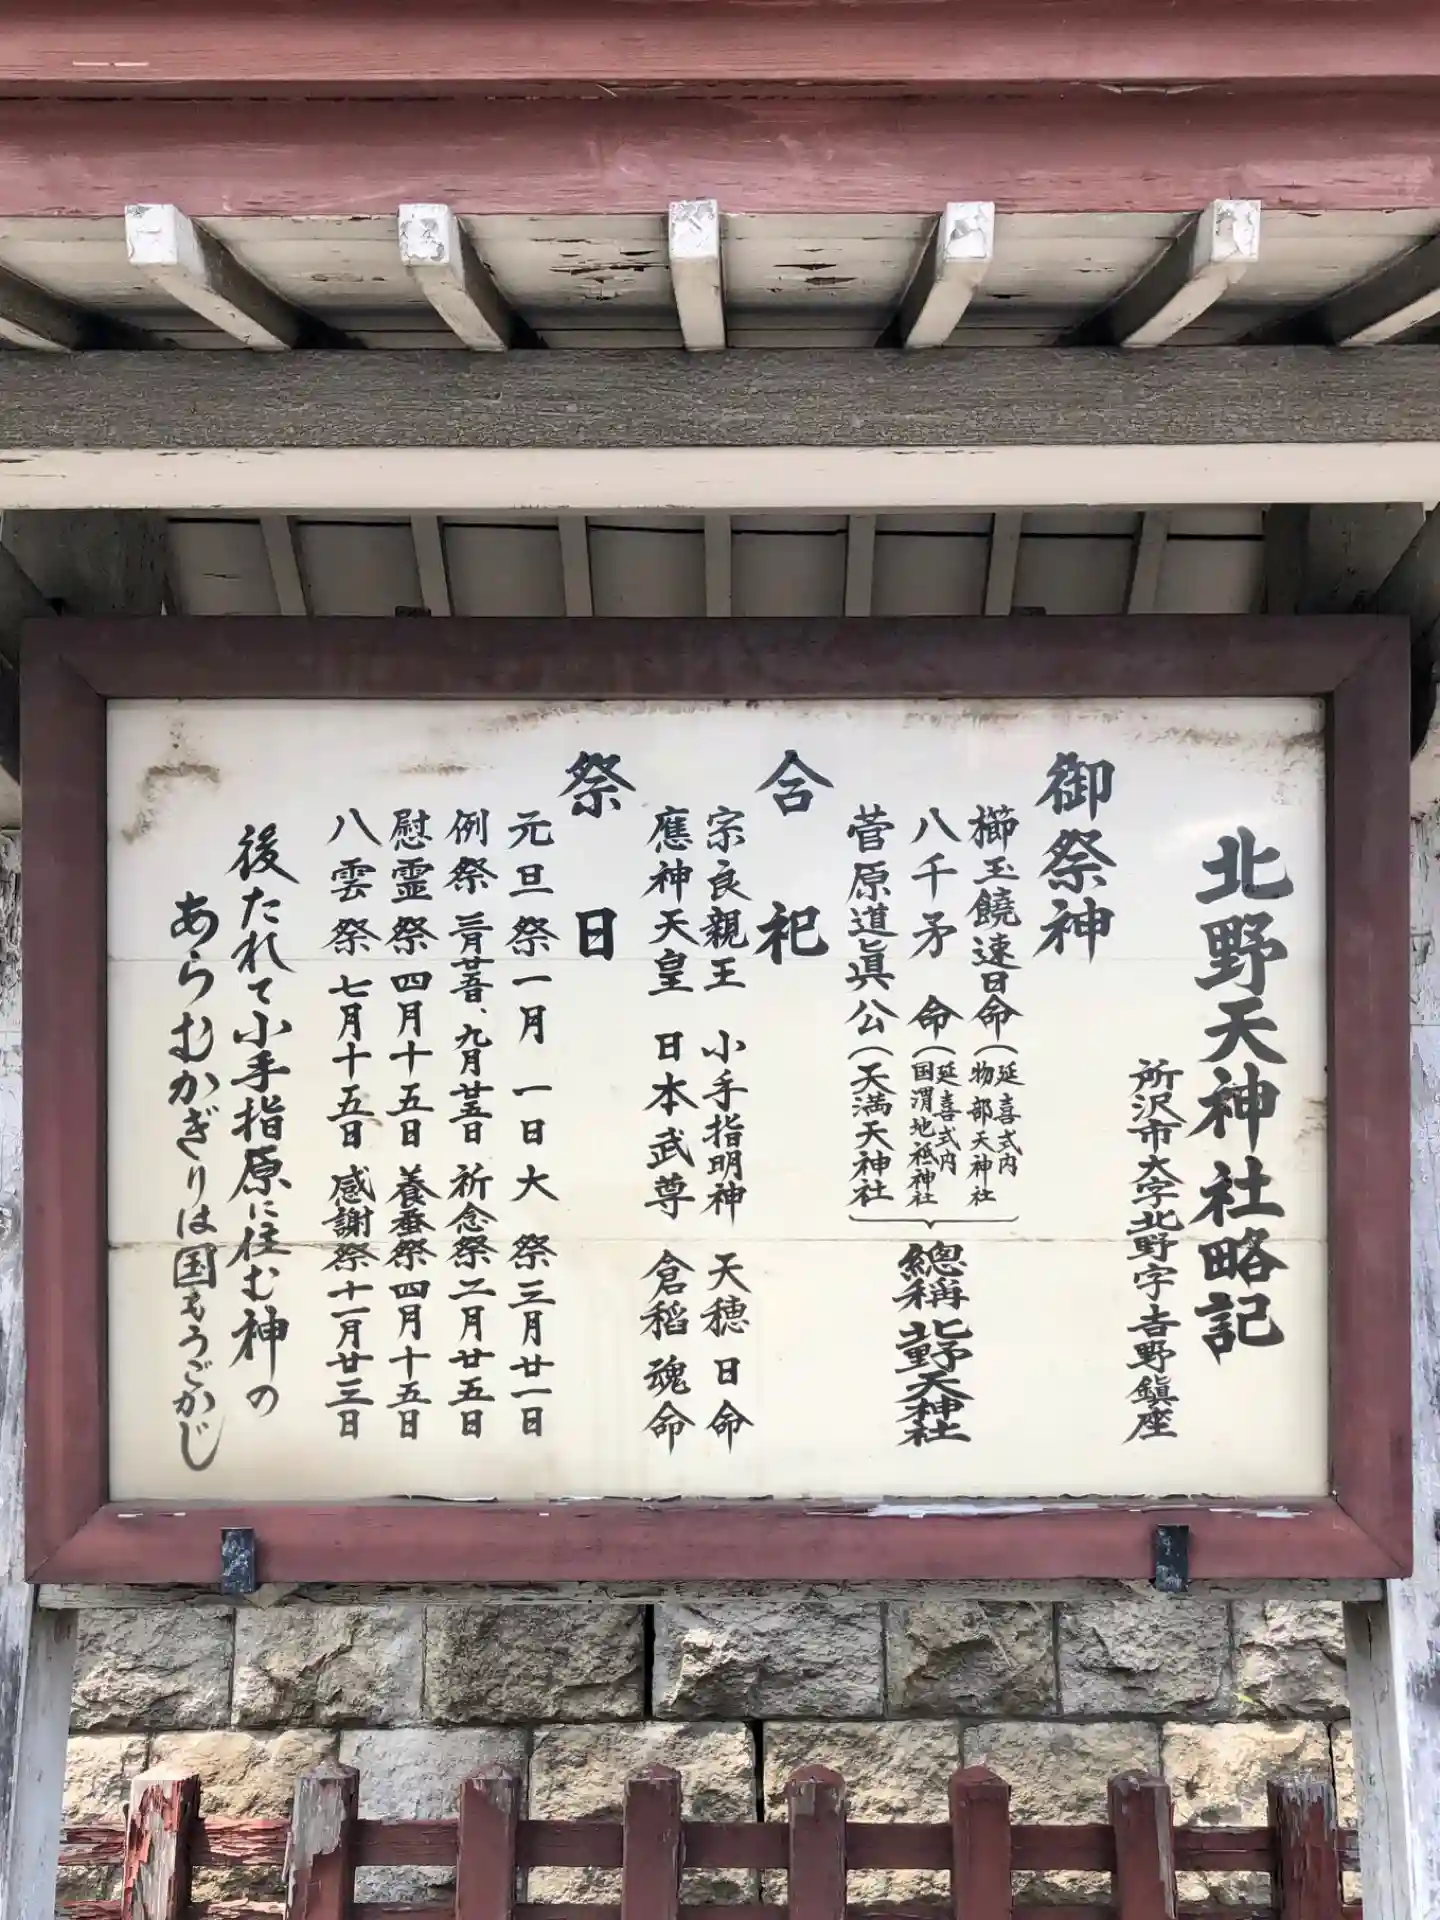 北野天神社略記
所沢市大字北野字𠮷野鎭座
御祭神
櫛玉饒速日命(延喜式内
物部天神社
八千矛命(延喜式内
国渭地祗神社
菅原道眞公(天満天神社
總稱北野天神社
合祀
宗良親王 小手指明神 天穂日命
應神天皇 日本武尊 倉稻魂命
祭日
元旦祭一月一日大祭三月廿一日
例祭二月廿五日、九月廿五日祈念祭二月廿五日
慰霊祭四月十五日養蚕祭四月十五日
八雲祭七月十五日感謝祭十一月廿三日
後たれて小手指原に住む神の
あらむかぎりは国もうごかじ